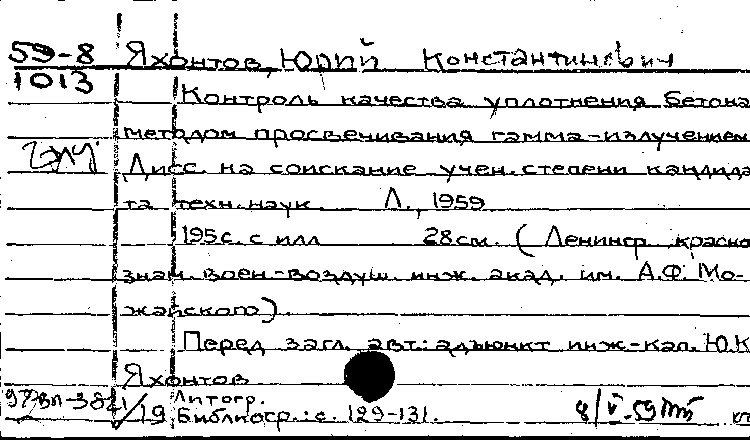 59-8 Яхонтов, Юрий Константинович
1013
Контроль качества уплотнения бетона
методом просвечивания гамма-излучением
Дисс. на соискание учен. степени кандида-
та техн. наук. Л., 1959
195 с. с илл 28 см. (Ленингр. красно-
знам. воен.-воздуш. инж. акад. им. А.Ф. Мо-
жайского).
Перед загл. авт.: адъюнкт инж-кап. Ю.К.
Яхонтов
Литогр.
19 Библиогр.: с. 129-131. 8/V-59